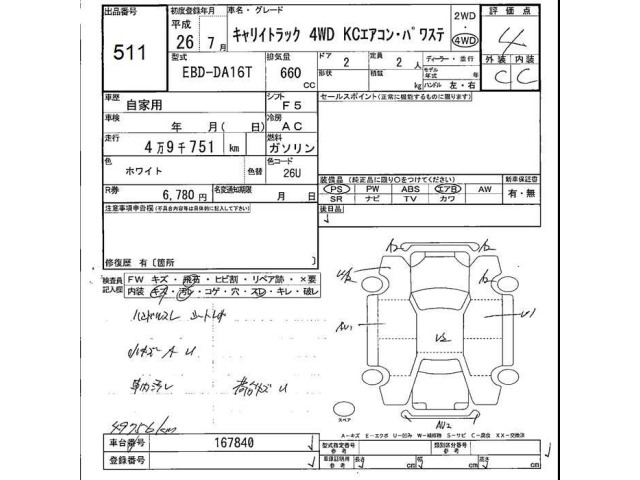 出品番号 初度登録年月 車名・グレード 2WD・4WD 評価点
511 平成 26年7月 キャリイトラック 4WD KCエアコン・パワステ 4
型式 排気量 ドア 定員 ディーラー・並行 外装 内装
EBD-DA16T 660 CC 2 2人 モデル年式 年 C C
形状 積載 kg ハンドル 左・右
車歴 自家用 シフト F5 セールスポイント(正常に機能するものに限ります)
車検 年 月( 日) 冷房 AC
走行 4万9千751 km 燃料 ガソリン
色 ホワイト 色替 色コード 26U
装備品 (純正品に限り○をつけてください) 新車保証書
R券 6,780円 名変通知期限 月 日 PS PW ABS エアB AW 有・無
SR ナビ TV カワ
注意事項申告欄(不具合内容等は具体的に記入して下さい) 後日品
修復歴 有〔箇所 〕
検査員記入欄 FW キズ・飛石・ヒビ割・リペア跡・×要
内装 キズ・汚レ・コゲ・穴・スレ・キレ・破レ
A2 A2
U2
AU1 U1
U2
小キズ A U
車内汚レ 荷台キズ U
49756km
スペア AU2
A-キズ E-エクボ U-凹み W-補修跡 S-サビ C-腐食 XX-交換済
車台番号 167840 型式指定番号 参考 類別区分番号 参考
登録番号 車庫証明用 参考 長さ cm 幅 cm 高さ cm